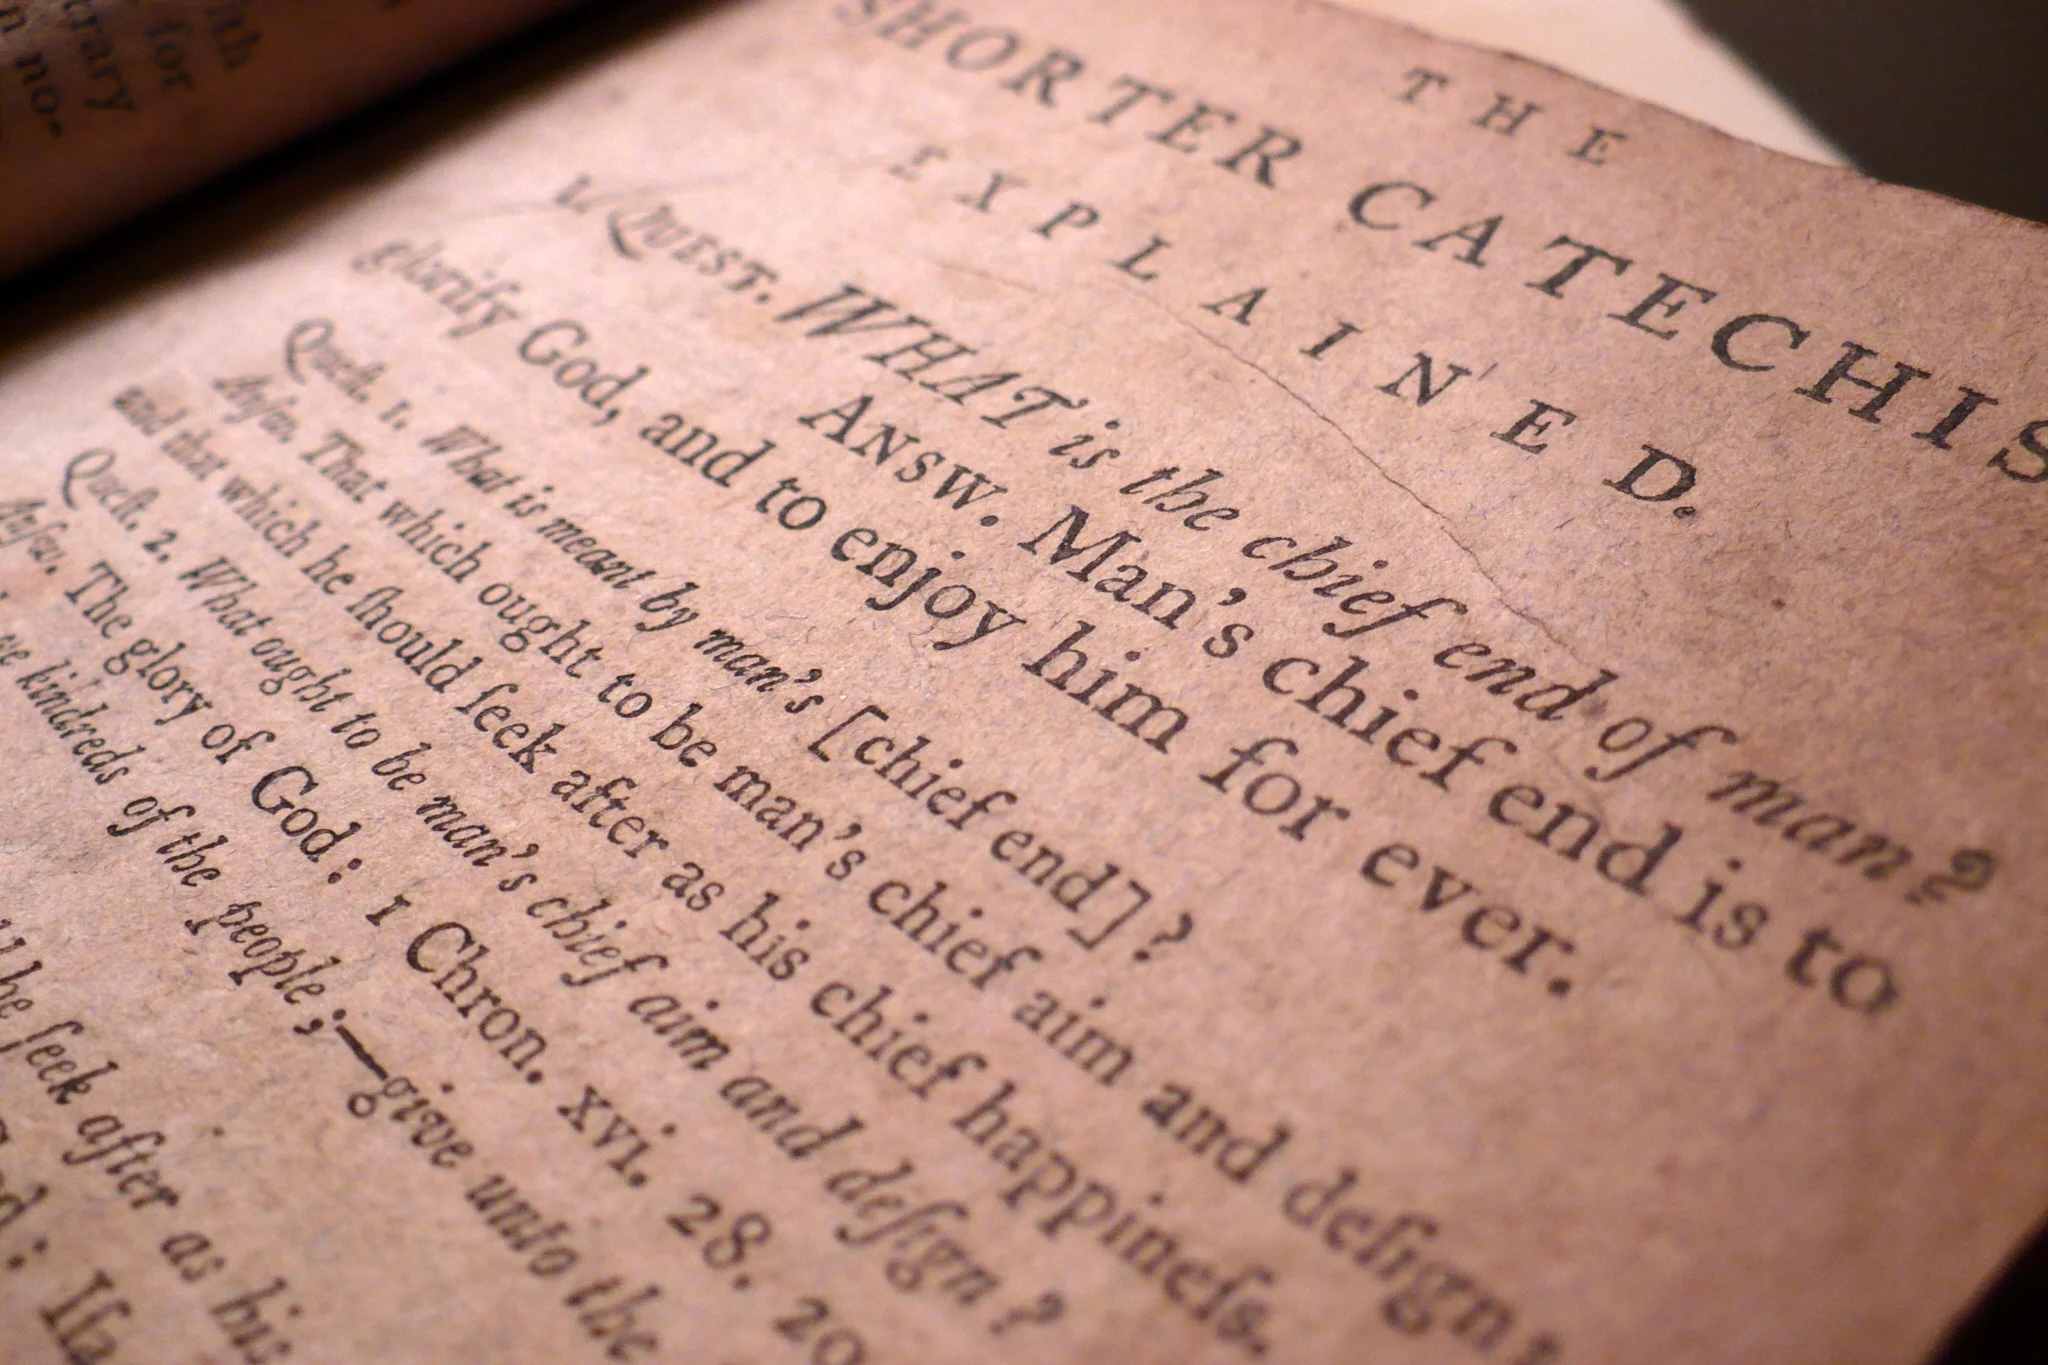 ith
for
trary
n no-
THE
SHORTER CATECHIS
EXPLAINED.
1. QUEST. WHAT is the chief end of man?
ANSW. Man's chief end is to
glorify God, and to enjoy him for ever.
Queſt. 1. What is meant by man's [chief end]?
Anſw. That which ought to be man's chief aim and deſign;
and that which he ſhould ſeek after as his chief happineſs.
Queſt. 2. What ought to be man's chief aim and deſign?
Anſw. The glory of God: 1 Chron. xvi. 28. 29
ye kindreds of the people;—give unto the
he ſeek after as his